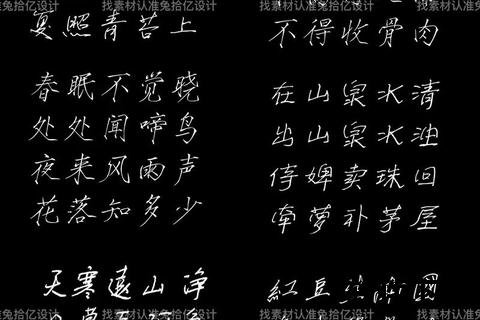 找素材认准兔拾亿设计
复照青苔上
春眠不觉晓
处处闻啼鸟
夜来风雨声
花落知多少
天寒远山净
找素材认准兔拾亿设计
找素材认准兔拾亿设计
不得收骨肉
在山泉水清
出山泉水浊
侍婢卖珠回
牵萝补茅屋
紅豆生南國
找素材认准兔拾亿设计